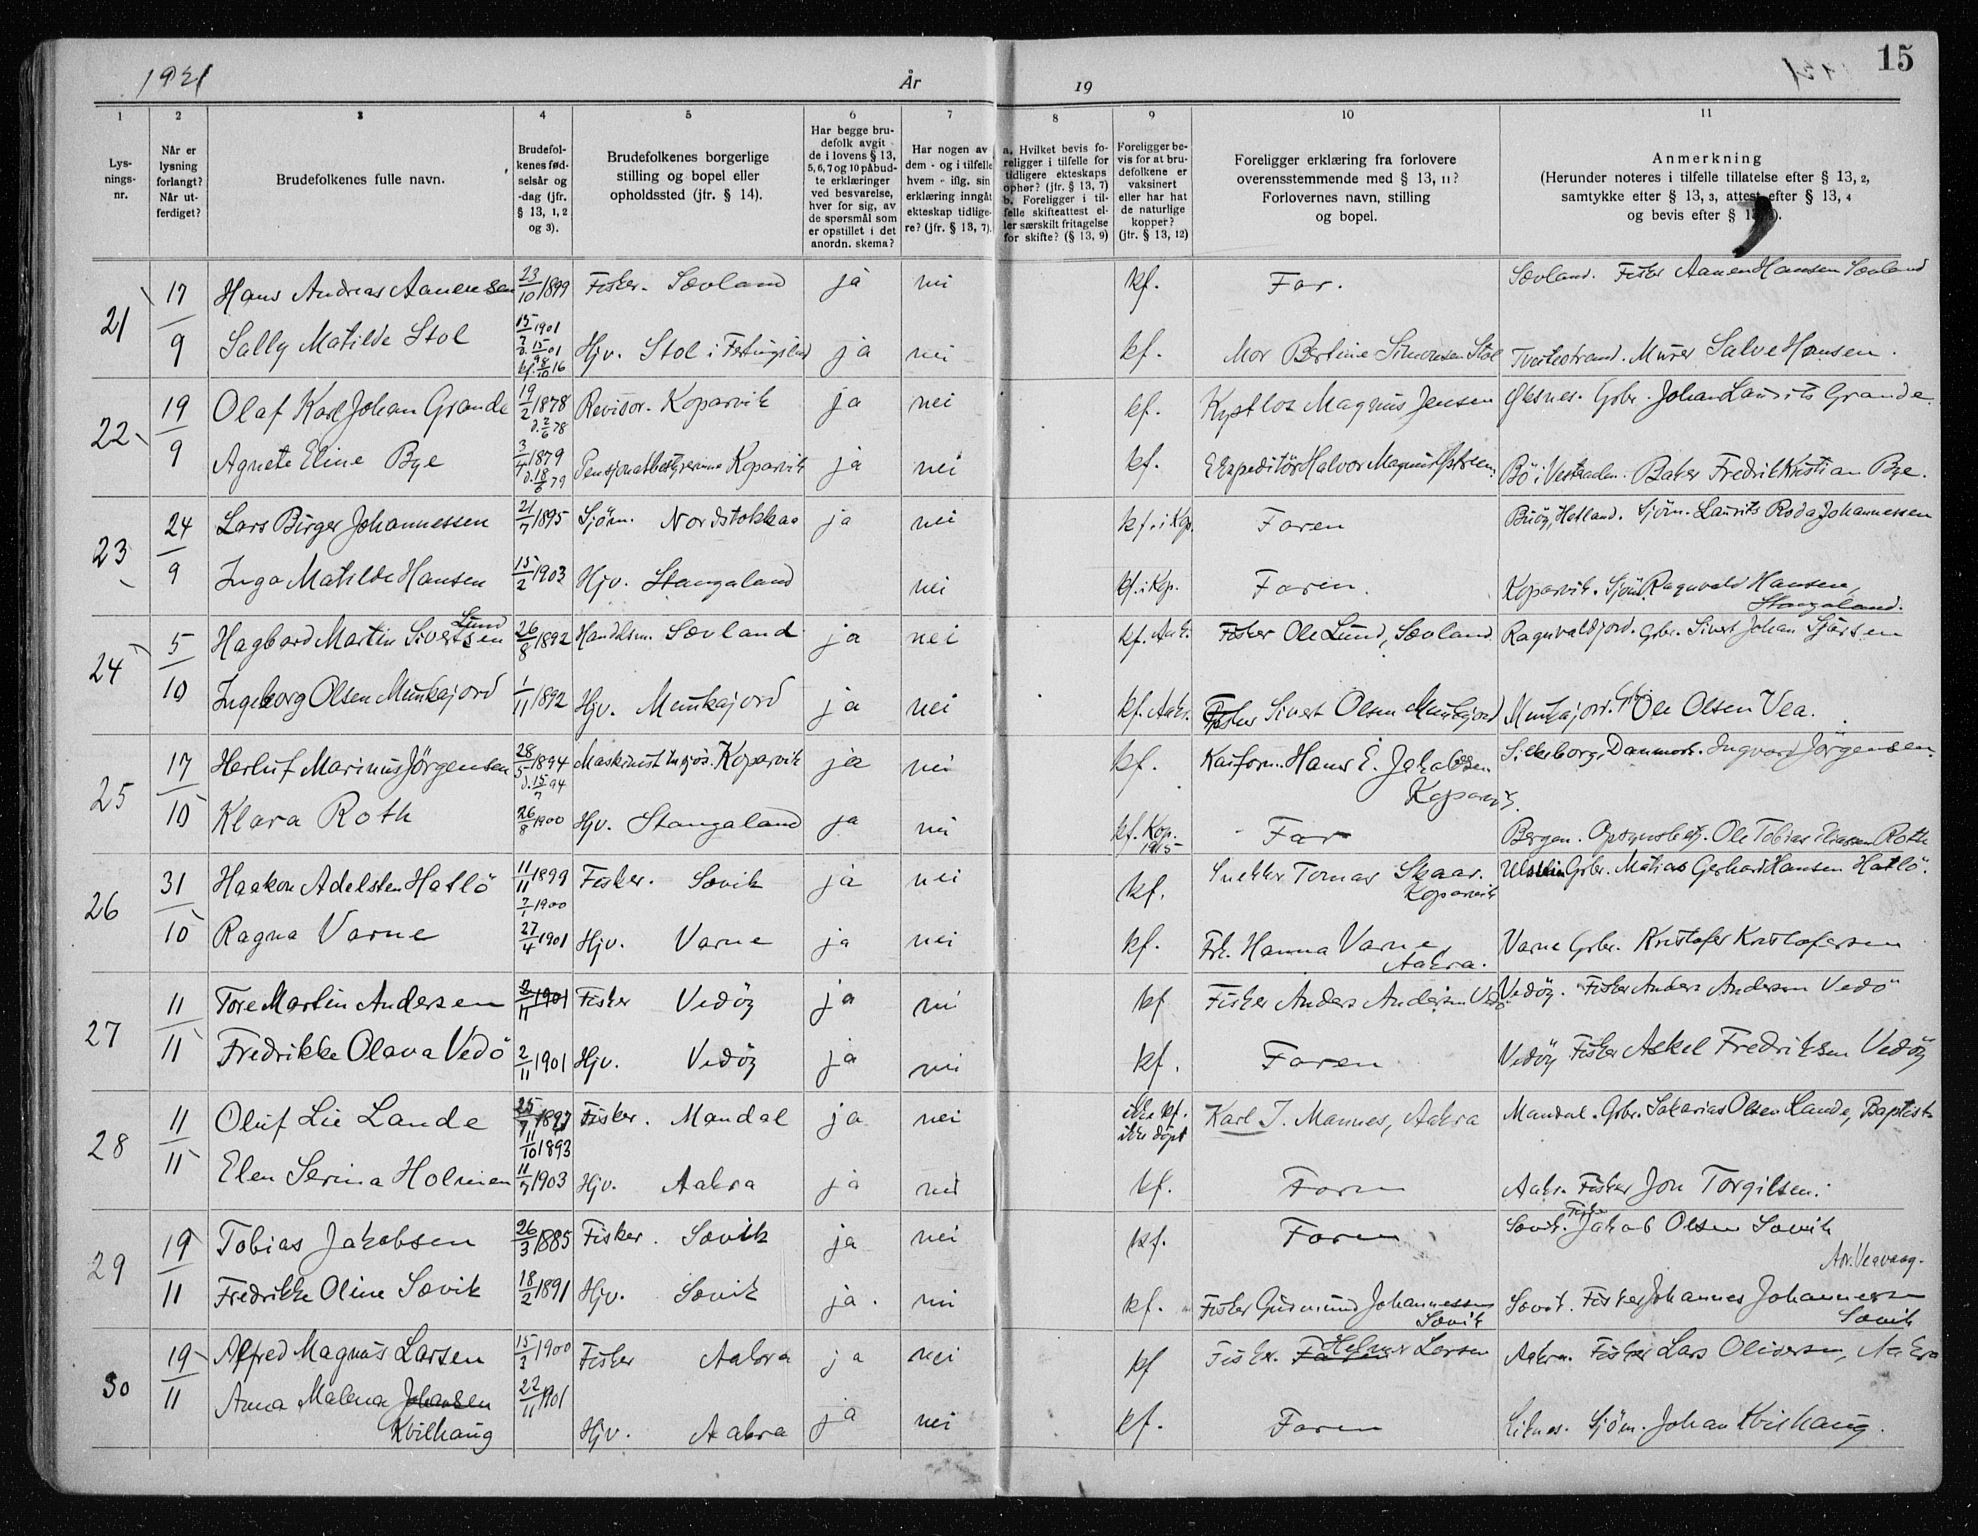 1921 År 19 1921 15
1 2 3 4 5 6 7 8 9 10 11
Lys-
nings-
nr.
Når er
lysning
forlangt?
Når ut-
ferdiget?
Brudefolkenes fulle navn.
Brudefol-
kenes fød-
selsår og
-dag (jfr.
§ 13, 1, 2
og 3).
Brudefolkenes borgerlige
stilling og bopel eller
opholdssted (jfr. § 14).
Har begge bru-
defolk avgit
de i lovens § 13,
5, 6, 7 og 10 påbud-
te erklæringer
ved besvarelse,
hver for sig, av
de spørsmål som
er opstillet i det
anordn. skema?
Har nogen av
dem - og i tilfelle
hvem - iflg. sin
erklæring inngåt
ekteskap tidlige-
re? (jfr. § 13, 7).
a. Hvilket bevis fo-
religger i tilfelle for
tidligere ekteskaps
ophør? (jfr. § 13, 7)
b. Foreligger i til-
felle skifteattest el-
ler særskilt fritagelse
for skifte? (§ 13, 9)
Foreligger be-
vis for at bru-
defolkene er
vaksinert
eller har hat
de naturlige
kopper?
(jfr. § 13, 12)
Foreligger erklæring fra forlovere
overensstemmende med § 13, 11?
Forlovernes navn, stilling
og bopel.
Anmerkning
(Herunder noteres i tilfelle tillatelse efter § 13, 2,
samtykke efter § 13, 3, attest efter § 13, 4
og bevis efter §
21 17/9 Hans Andreas Aanensen 23/10 1899 Fisker. Sævland ja nei kf. Far. Sævland. Fisker Aanen Hansen Sævland
Sally Matilde Stol 15/7 1901 d. 15/9 01 kf. 8/10 16 Hjv. Stol i ja nei kf. Mor Bertine Simonsen Stol Tvedestrand. Murer Salve Hansen.
22 19/9 Olaf Karl Johan Grande 19/2 1878 d. 2/6 78 Revisor. Koparvik ja nei kf. Magnus Jensen Øksnes. Gbr. Johan Laurits Grande.
Agnete Eline Bye 3/4 1879 d. 18/6 79 Pensjonatbestyrerinne Koparvik ja nei kf. Ekspeditör Halvor Magnus Bö i Vesteraalen. Baker Fredrik Kristian Bye.
23 24/9 Lars Birger Johannessen 21/7 1895 Sjöm. Nordstokkaa ja nei kf. i Kop. Faren Buöy, Hetland. Sjöm. Laurits Roda Johannessen
Inga Matilde Hansen 15/2 1903 Hjv. Stangaland nei kf. i Kop. Faren. Koparvik. Sjöm. Ragnvald Hansen,
Stangaland.
24 5/10 Hagbard Martin Sivertsen Lund 26/8 1892 Handelsm. Sævland ja nei kf. Aak. Fisker Ole Lund, Sævland. Ragnvaldjord. Gbr. Sivert Johan
Ingeborg Olsen Munkajord 1/11 1892 Hjv. Munkajord ja nei kf. Aakr. Fisker Sivert Olsen Munkejord Munkajord. Gbr. Ole Olsen Vea.
25 17/10 Herluf Marinus Jörgensen 28/5 1894 d. 15/7 94 Maskinist Koparvik ja nei kf. Hans E. Jakobsen
Koparvik. Silkeborg, Danmark. Ingvard Jörgensen.
Klara Roth 26/8 1900 Hjv. Stangaland ja nei kf. Kop. 1915 Far Bergen. Opsynsbetj. Ole Tobias Roth
26 31/10 Haakon Adelsten Hatlö 11/11 1899 7/1 1900 Fisker. Sævik ja nei kf. Snekker Tomas Skaar.
Koparvik Ulstein Gbr. Matias Gerhard Hansen Hatlö.
Ragna Varne 27/4 1901 Hjv. Varne ja nei kf. Frk. Hanna Varne,
Aakra. Varne Gbr. Kristofer Kristofersen
27 11/11 Tore Martin Andersen 2/11 1901 Fisker Vedöy ja nei kf Fisker Anders Andersen Vedö Vedöy. Fisker Anders Andersen Vedö
Fredrikke Olava Vedö 2/11 1901 Hjv. Vedöy ja nei kf. Faren Vedöy Fisker Askel Fredriksen Vedöy
28 11/11 Oluf Lie Lande 25/7 1897 11/10 1893 Fisker. Mandal ja nei ikke kf. ikke döpt Karl J. Mannes, Aakra Mandal. Gbr. Sakarias Olsen Lande, Baptist
Elen Serina Holmen 11/7 1903 Hjv. Aakra ja nei kf. Faren Aakr. Fisker Jon Torgilsen.
29 19/11 Tobias Jakobsen 26/3 1885 Fisker. Sævik ja nei kf. Faren Sævik. Fisker Jakob Olsen Sævik
Adr. Veavaag.
Fredrikke Oline Sævik 18/2 1891 Hjv. Sævik ja. nei kf. Fisker Gudmund Johannessen
Sævik Sævik. Fisker Johannes Johannesen
Sævik
30 19/11 Alfred Magnus Larsen 15/2 1900 Fisker Aakra ja nei kf Fisker. Faren Helmer Larsen Aakra. Fisker Lars Oliversen, Aakra
Anna Malena Johansen
Kvilhaug 22/11 1901 Hjv. Aakra ja nei kf. Faren Liknes. Sjöm. Johan Kvilhaug.